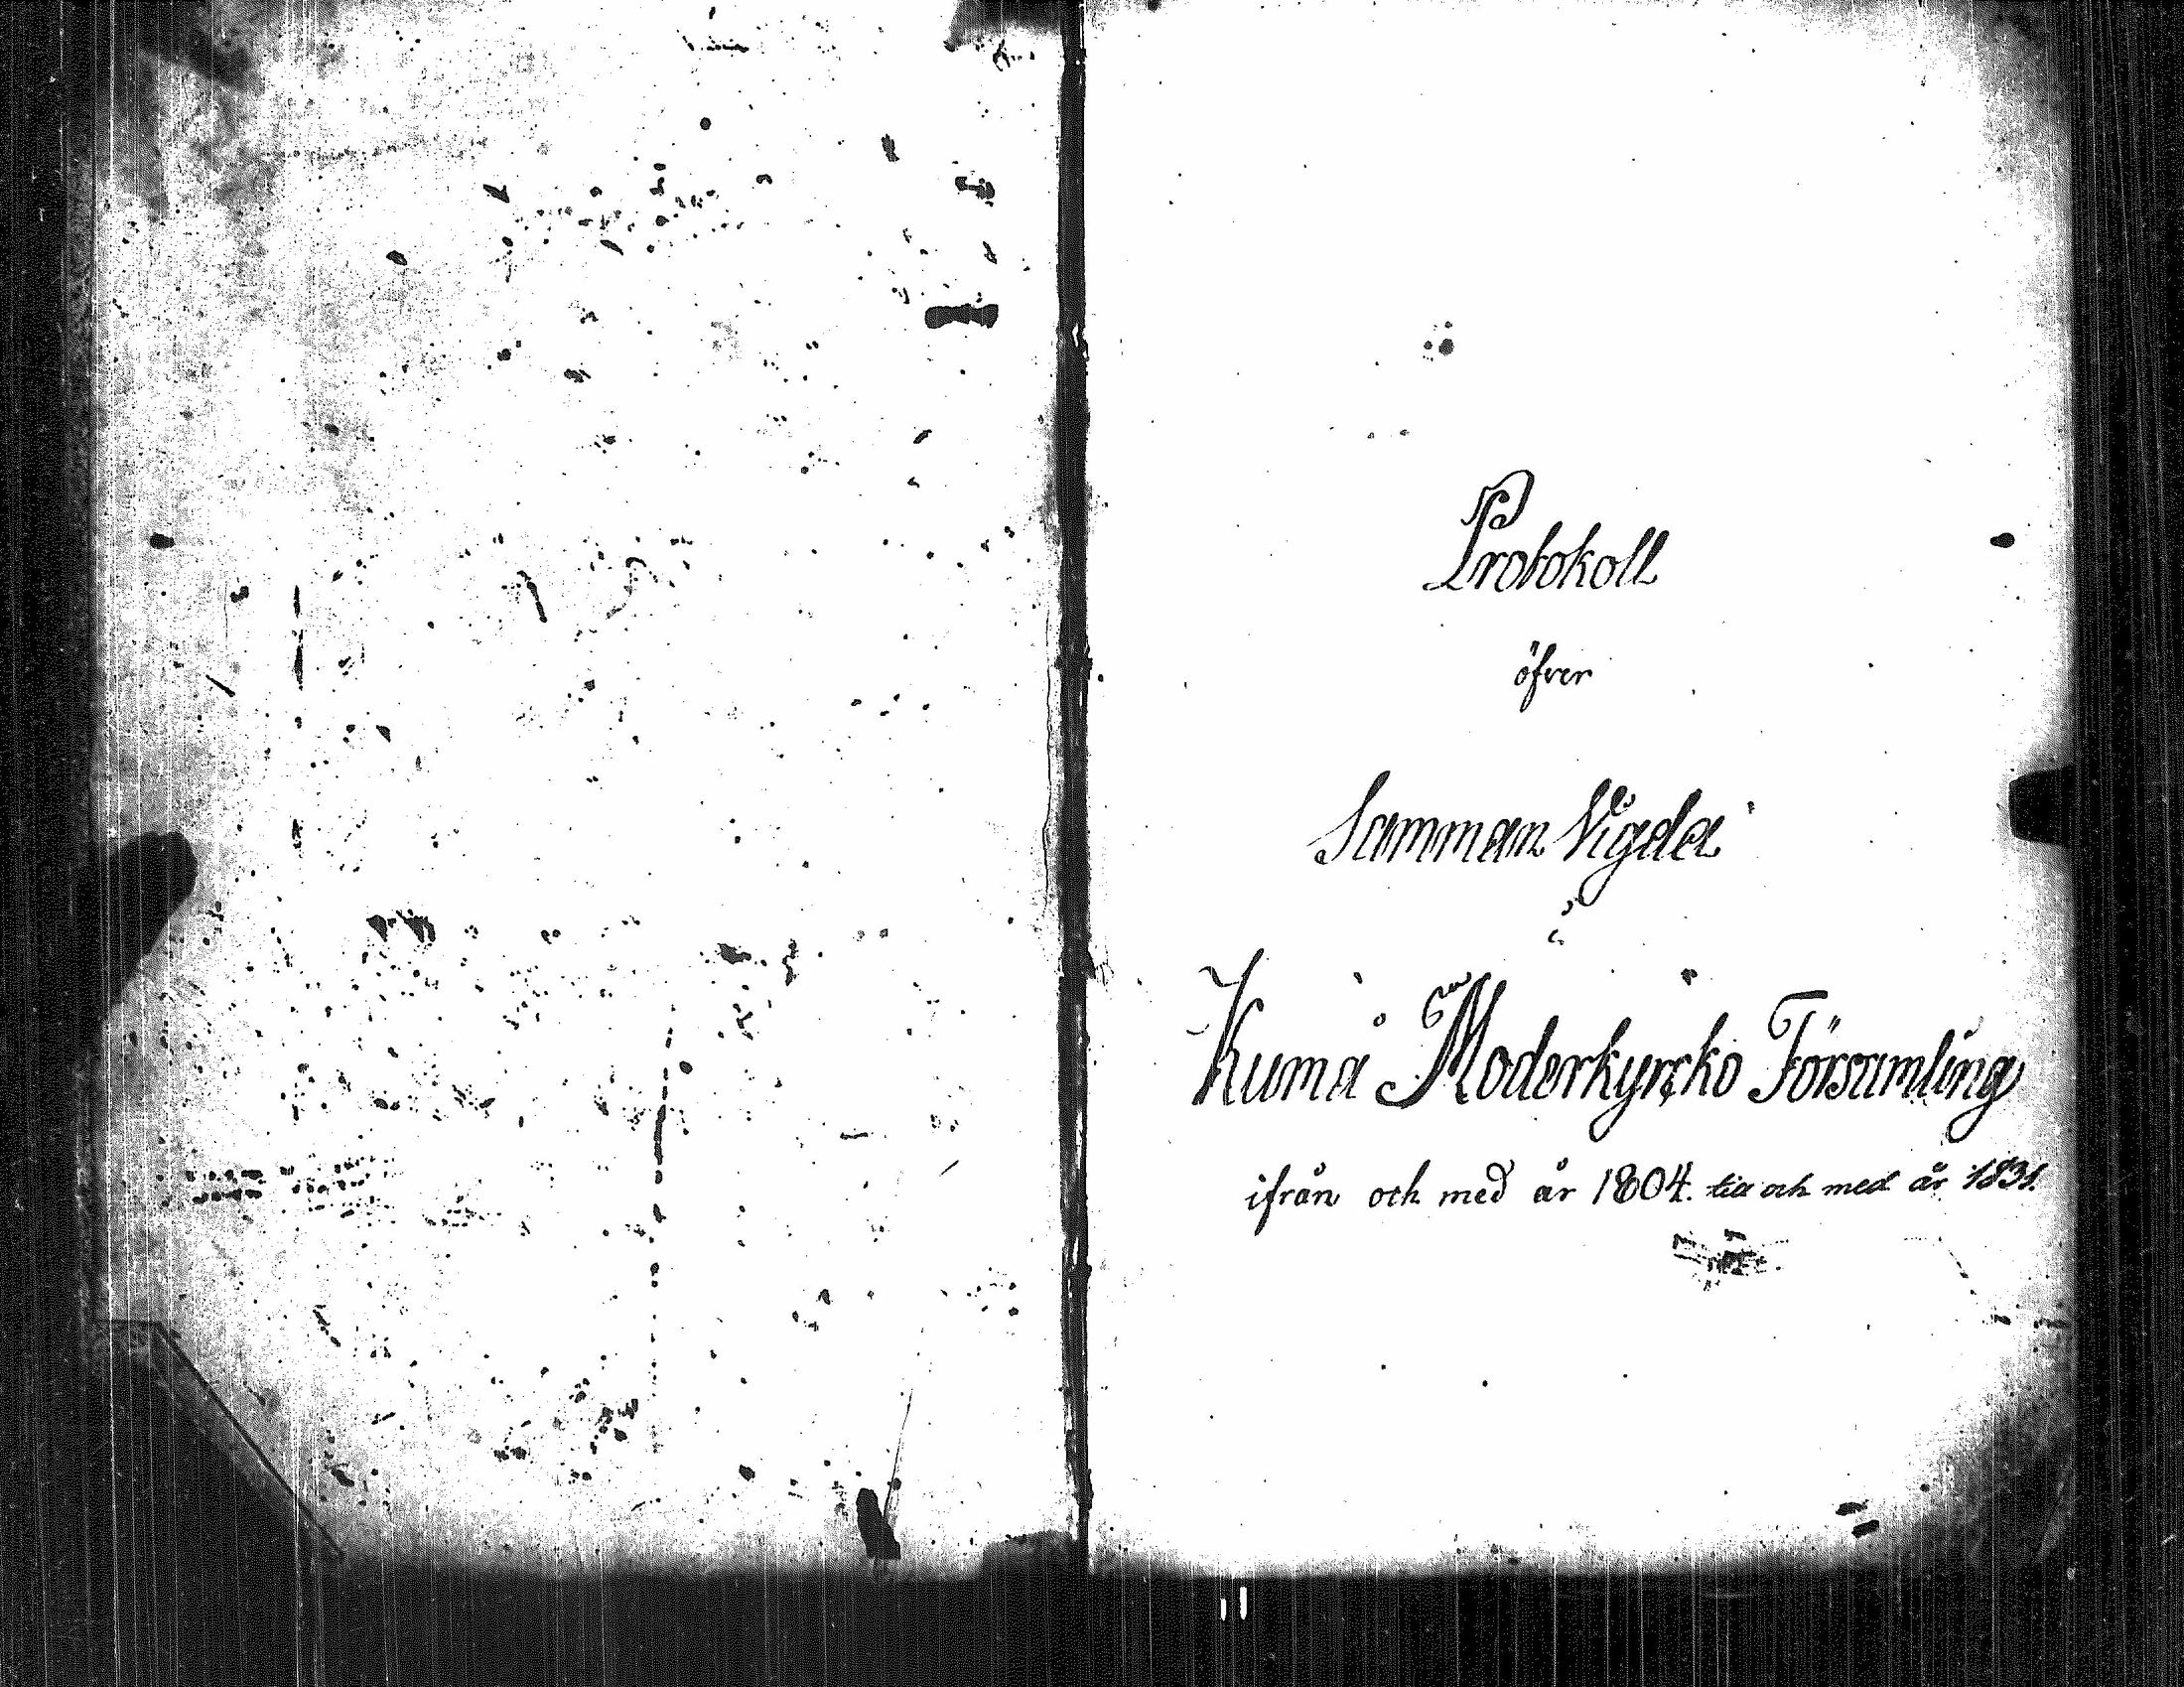 Protokoll
öfver
Samman Vigda
i
Kumå Moderkyrcko Församling
ifrån och med år 1804. till och med år 1831.